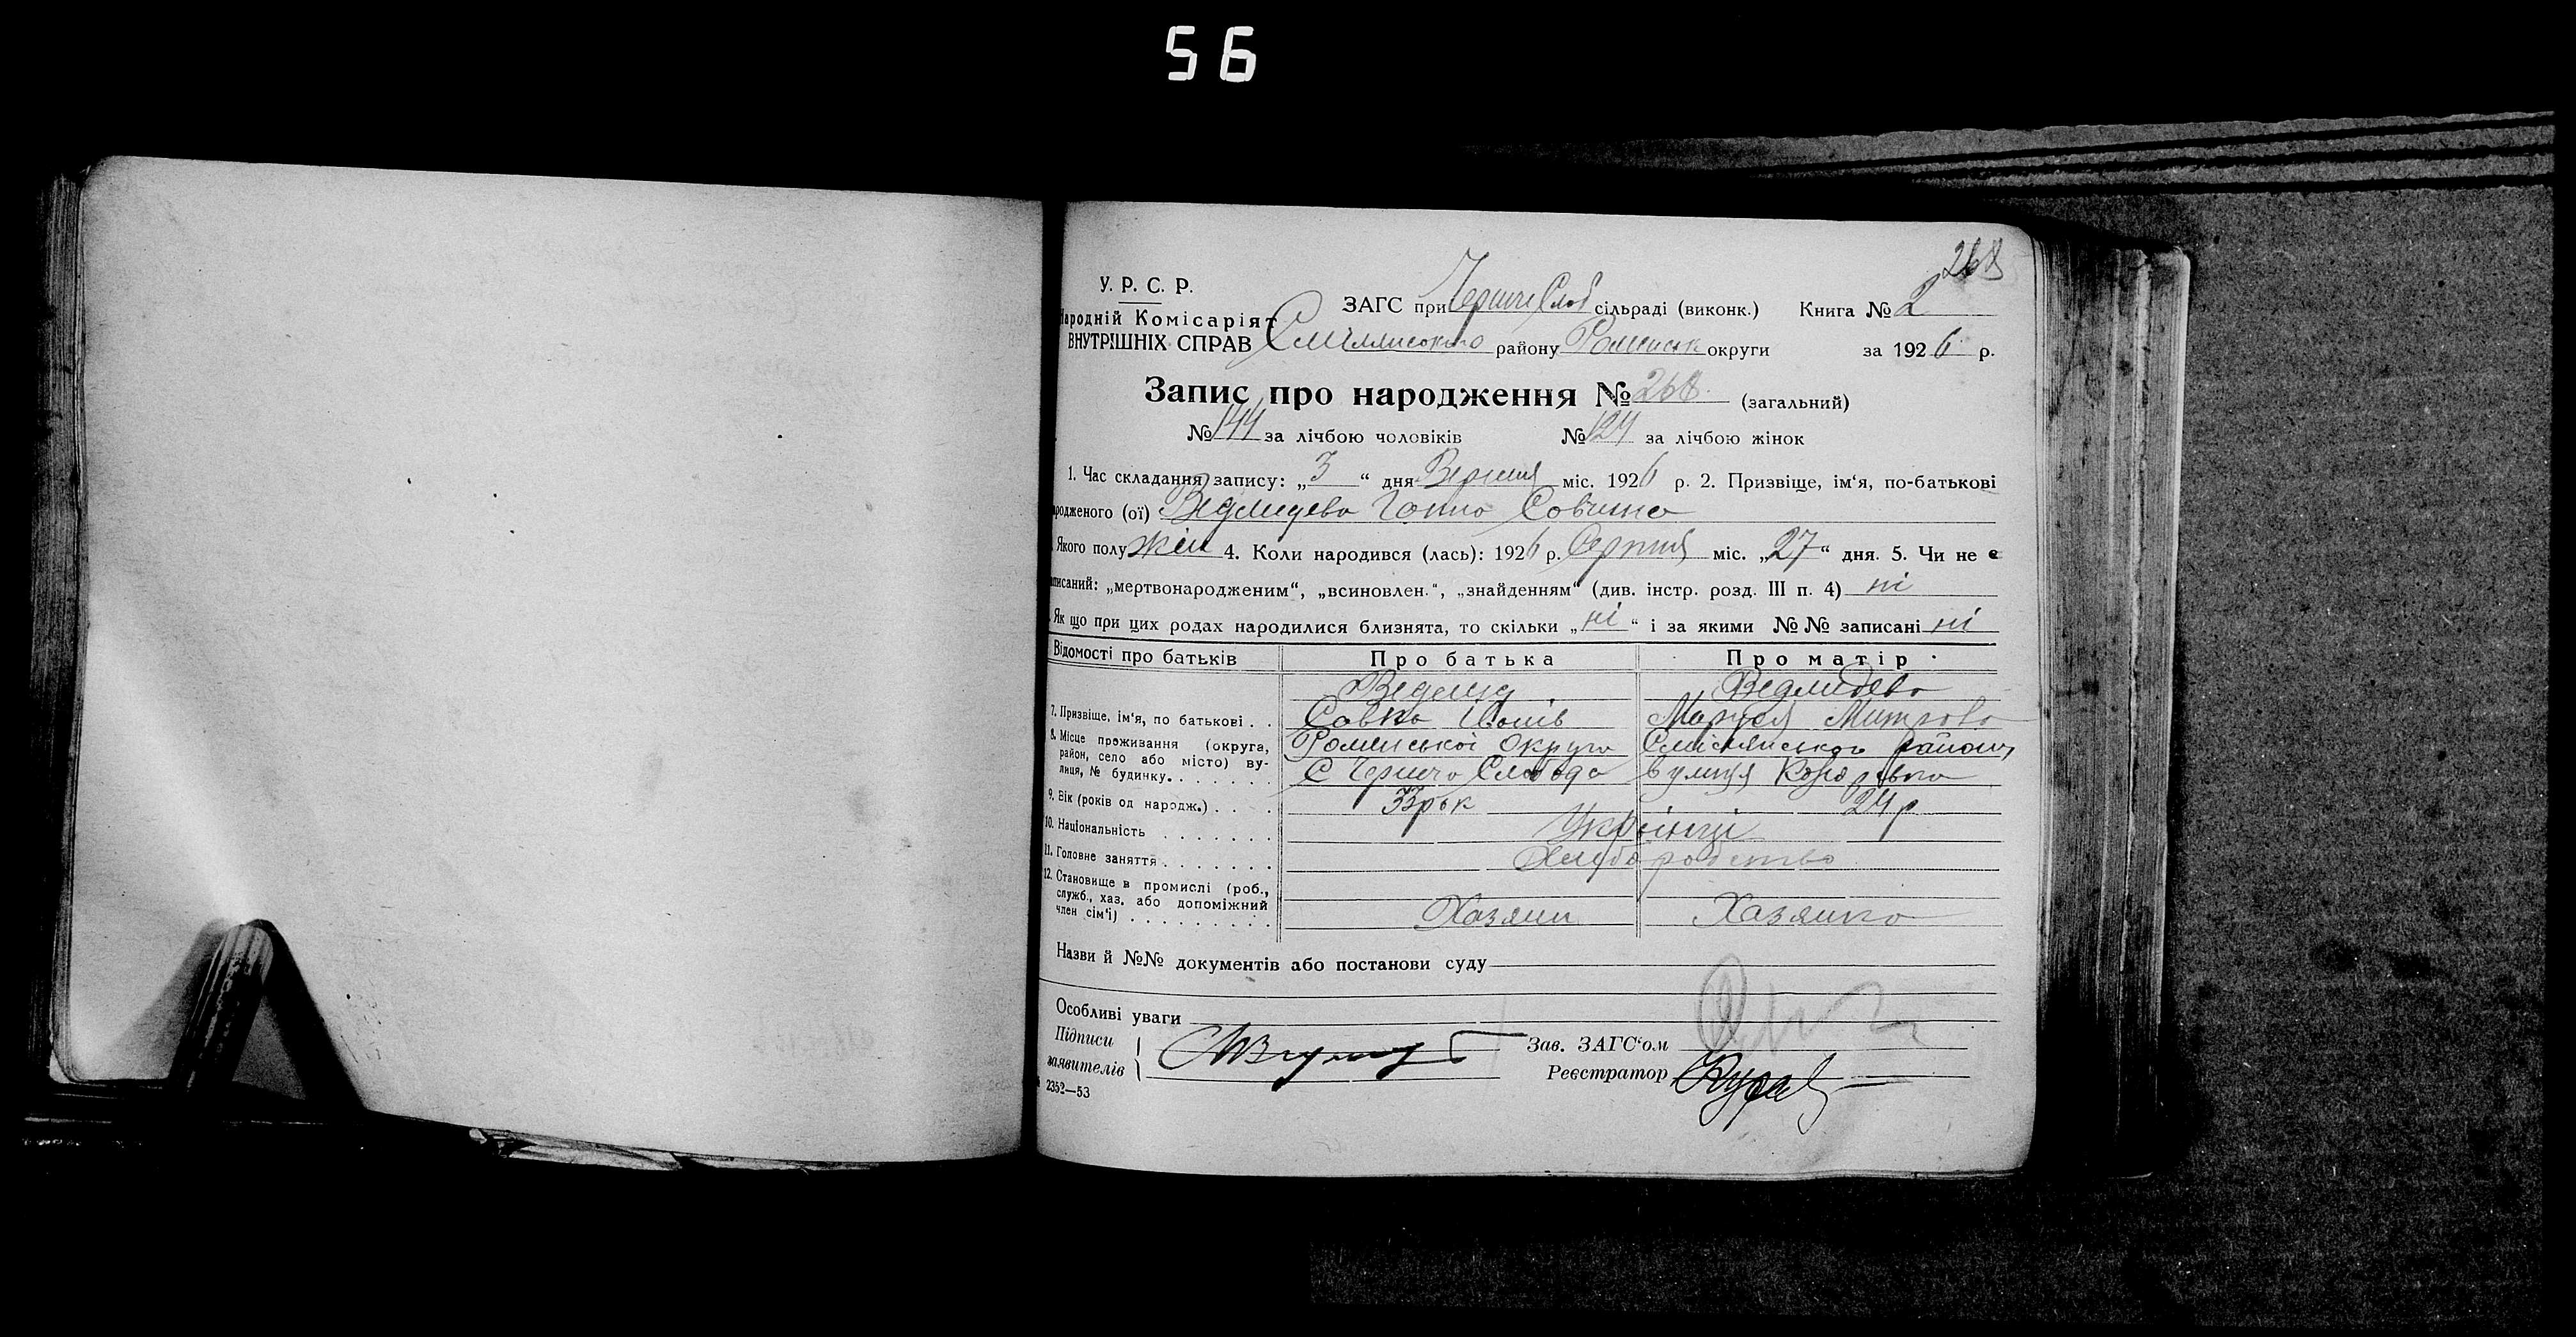 56
268
У. Р. С. Р.
Народній Комісаріят
ВНУТРІШНІХ СПРАВ
ЗАГС при Чернече Слоб сільраді (виконк.) Книга № 2
району Роменськ округи за 1926 р.
Запис про народження № 268 (загальний)
№ 144 за лічбою чоловіків № 124 за лічбою жінок
1. Час складання запису: „3“ дня Вересня міс. 1926 р. 2. Призвіще, ім'я, по-батькові
народженого (ої) Ведмидева Ганна Совина
Якого полу жін 4. Коли народився (лась): 1926 р. Серпня міс. „27“ дня. 5. Чи не є
записаний: „мертвонародженим“, „всиновлен.“, „знайденням“ (див. інстр. розд. III п. 4) ні
Як що при цих родах народилися близнята, то скільки „ні“ і за якими №№ записані ні
Відомості про батьків Про батька Про матір
Ведмид Ведмидева
7. Призвіще, ім'я, по батькові . . Савка Маруся Митрова
8. Місце проживання (округа, район, село або місто) вулиця, № будинку. Роменської Округи Смілянського району
С Чернеча Слобода вулиця
9. Вік (років од народж.) . . . 33 рок 24 р
10. Національність Українці
11. Головне заняття Хлібаробство
12. Становище в промислі (роб., служб., хаз. або допоміжний член сім'ї) Хазяин Хазяйка
Назви й №№ документів або постанови суду
Особливі уваги
Підписи
заявителів
Зав. ЗАГС'ом
Реєстратор
2352—53